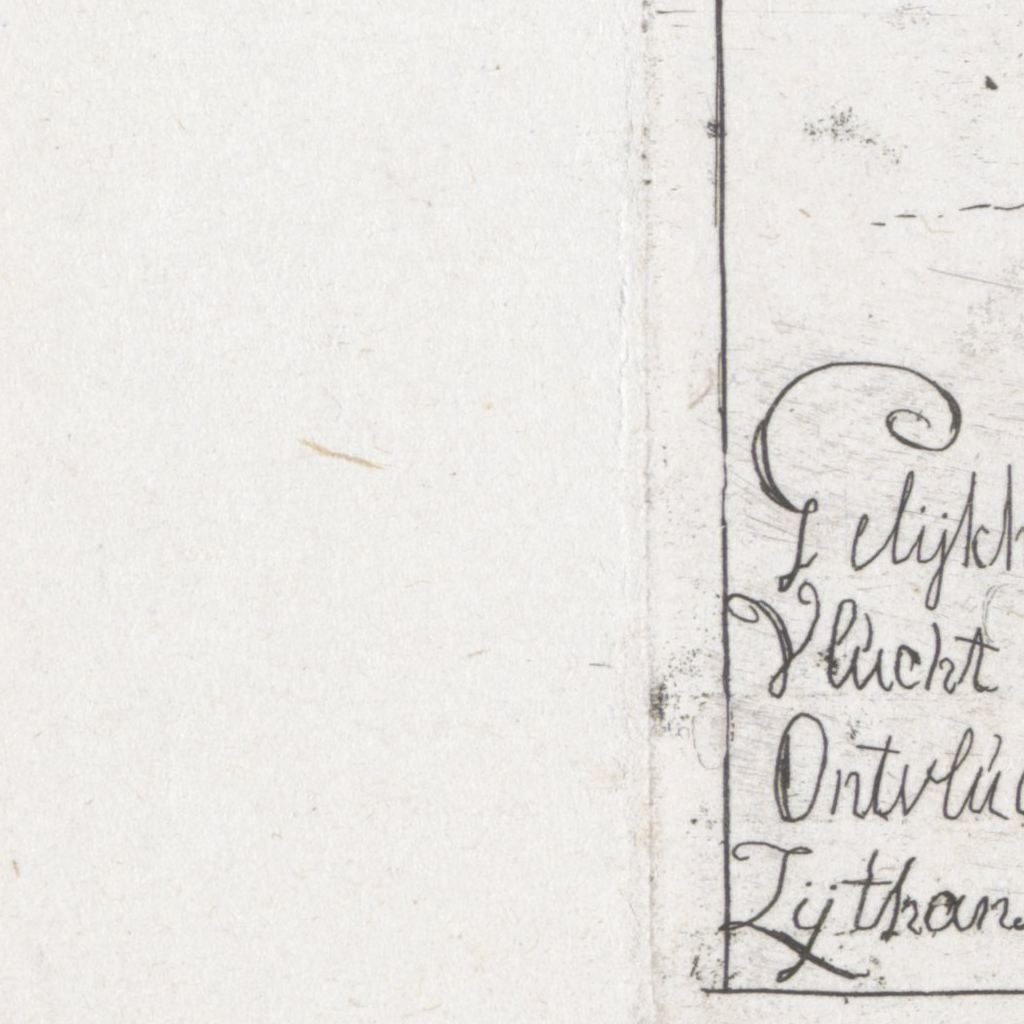 Gelijkh
Vlúcht
Ontvlúc
Zij thans